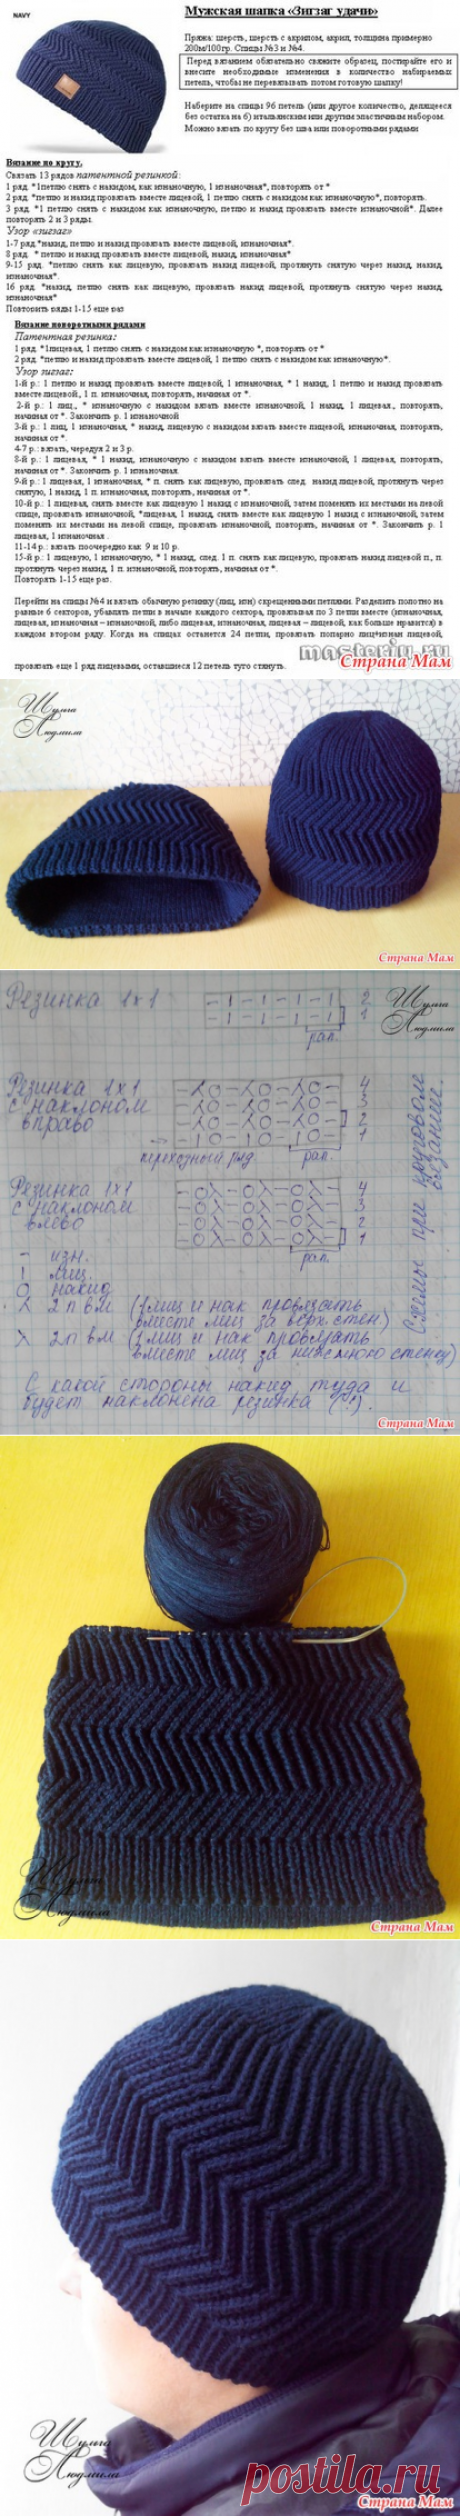 NAVY
Мужская шапка «Зигзаг удачи»
Пряжа: шерсть, шерсть с акрилом, акрил, толщина примерно
200м/100гр. Спицы №3 и №4.
Перед вязанием обязательно свяжите образец, постирайте его и
внесите необходимые изменения в количество набираемых
петель, чтобы не перевязывать потом готовую шапку!
Наберите на спицы 96 петель (или другое количество, делящееся
без остатка на 6) итальянским или другим эластичным набором.
Можно вязать по кругу без шва или поворотными рядами
Вязание по кругу.
Связать 13 рядов патентной резинкой:
1 ряд. *1петлю снять с накидом, как изнаночную, 1 изнаночная*, повторять от *
2 ряд. *петлю и накид провязать вместе лицевой, 1 петлю снять с накидом как изнаночную*, повторять.
3 ряд. *1 петлю снять с накидом как изнаночную, петлю и накид провязать вместе изнаночной*. Далее
повторять 2 и 3 ряды.
Узор «зигзаг»
1-7 ряд *накид, петлю и накид провязать вместе лицевой, изнаночная*.
8 ряд. * петлю и накид провязать вместе лицевой, накид, изнаночная*
9-15 ряд. *петлю снять как лицевую, провязать накид лицевой, протянуть снятую через накид, накид,
изнаночная*.
16 ряд. *накид, петлю снять как лицевую, провязать накид лицевой, протянуть снятую через накид,
изнаночная*
Повторить ряды 1-15 еще раз
Вязание поворотными рядами
Патентная резинка:
1 ряд. *1лицевая, 1 петлю снять с накидом как изнаночную *, повторять от *
2 ряд. *петлю и накид провязать вместе лицевой, 1 петлю снять с накидом как изнаночную*.
Узор зигзаг:
1-й р.: 1 петлю и накид провязать вместе лицевой, 1 изнаночная, * 1 накид, 1 петлю и накид провязать
вместе лицевой., 1 п. изнаночная, повторять, начиная от *.
2-й р.: 1 лиц., * изнаночную с накидом вязать вместе изнаночной, 1 накид, 1 лицевая., повторять,
начиная от *. Закончить р. 1 изнаночной
3-й р.: 1 лиц, 1 изнаночная, * накид, лицевую с накидом вязать вместе изнаночной, изнаночная, повторять,
начиная от *.
4-7 р.: вязать, чередуя 2 и 3 р.
8-й р.: 1 лицевая, * 1 накид, изнаночную с накидом вязать вместе изнаночной, 1 лицевая, повторять,
начиная от *. Закончить р. 1 изнаночная.
9-й р.: 1 лицевая, 1 изнаночная, * п. снять как лицевую, провязать след. накид лицевой, протянуть через
снятую, 1 накид, 1 п. изнаночная, повторять, начиная от *.
10-й р.: 1 лицевая, снять вместе как лицевую 1 накид с изнаночной, затем поменять их местами на левой
спице, провязать изнаночной, *лицевая, 1 накид, снять вместе как лицевую 1 накид с изнаночной, затем
поменять их местами на левой спице, провязать изнаночной, повторять, начиная от *. Закончить р. 1
лицевая, 1 изнаночная .
11-14 р.: вязать поочередно как 9 и 10 р.
15-й р.: 1 лицевую, 1 изнаночную, * 1 накид, след. 1 п. снять как лицевую, провязать накид лицевой п., п.
протянуть через накид, 1 п. изнаночной, повторять, начиная от *.
Повторять 1-15 еще раз.
Перейти на спицы №4 и вязать обычную резинку (лиц, изн) скрещенными петлями. Разделить полотно на
равные 6 секторов, убавлять петли в начале каждого сектора, провязывая по 3 петли вместе (изнаночная,
лицевая, изнаночная – изнаночной, либо лицевая, изнаночная, лицевая – лицевой, как больше нравится) в
каждом втором ряду. Когда на спицах останется 24 петли, провязать попарно лиц+изнан лицевой,
провязать еще 1 ряд лицевыми, оставшиеся 12 петель туго стянуть.
masteriu.ru
Страна Мам
Шулга
Людмила
Страна Мам
Резинка 1х1
- 1 - 1 - 1 - 1 2
- 1 - 1 - 1 - 1 1
рап.
Шулга
Людмила
Резинка 1х1
с наклоном
вправо
4
3
2
1
переходный ряд
рап.
Резинка 1х1
с наклоном
влево
4
3
2
1
рап.
Схемы при круговом вязании.
- изн.
1 лиц.
О накид
2 п вм (1 лиц и нак провязать
вместе лиц за верх стен)
2п вм (1 лиц и нак провязать
вместе лиц за нижнюю стенку)
С какой стороны накид туда и
будет наклонена резинка (!).
Страна Мам
Шулга
Людмила
Страна Мам
Шулга
Людмила
postila.ru
Страна Мам